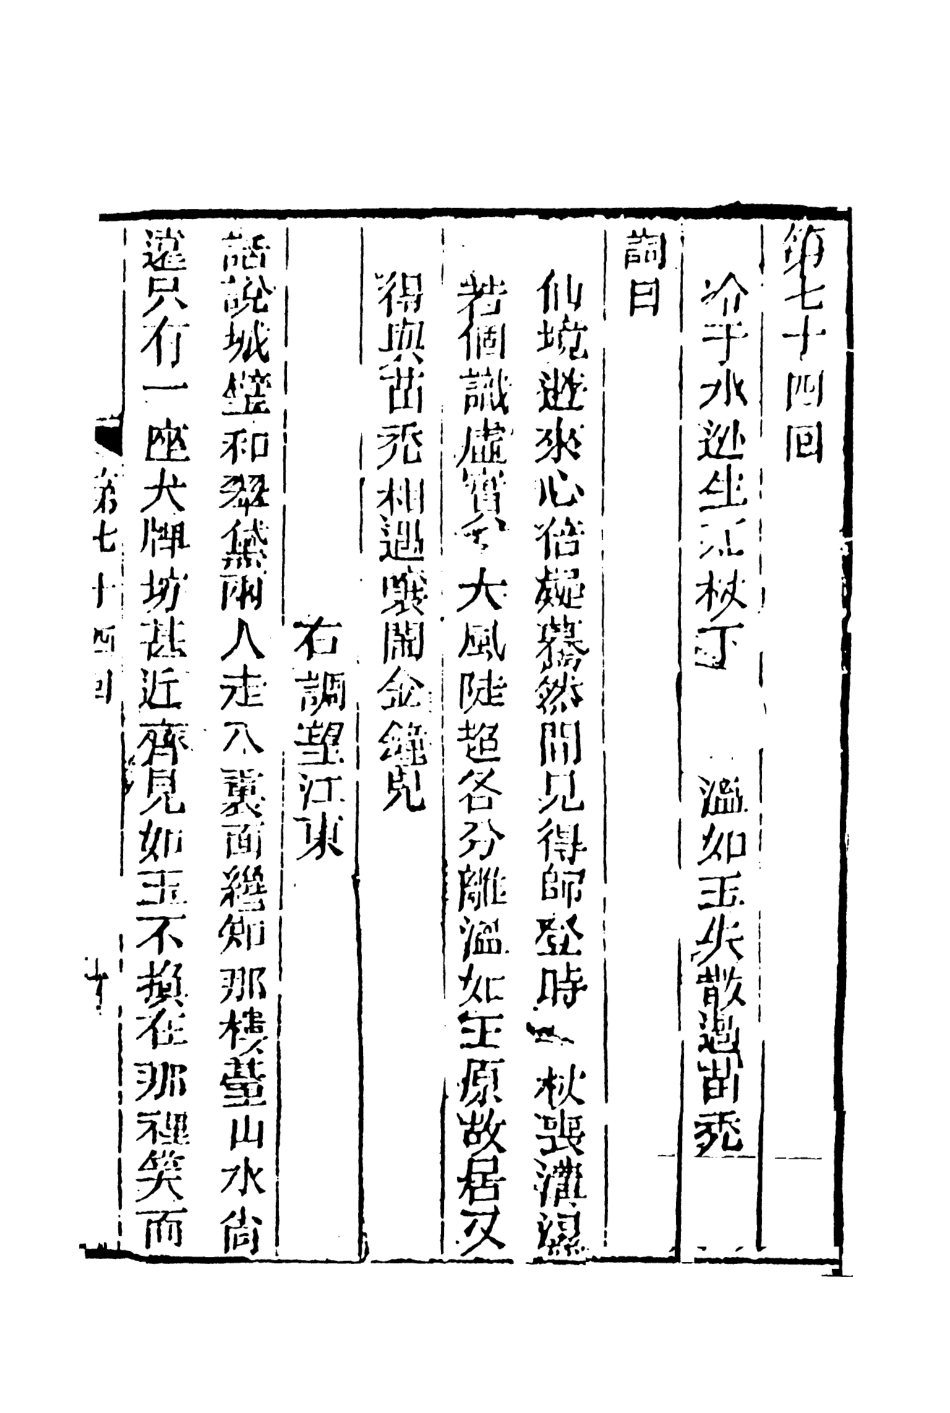 第七十四回
冷于水逃生死杖下　溫如玉失散遇苗禿
詞曰
仙境遊來心倍癡驀然間見得師登時一杖喪灃濕
若個識虛實兮大風陡起各分離溫如玉原故居又
得與苗禿相遇嚷鬧金鐘兒
右調望江東
話說城璧和翠黛兩人走入裏面纔知那樓臺山水尚
遠只有一座大牌坊甚近齊見如玉不換在那裡笑而
第七十四回
十